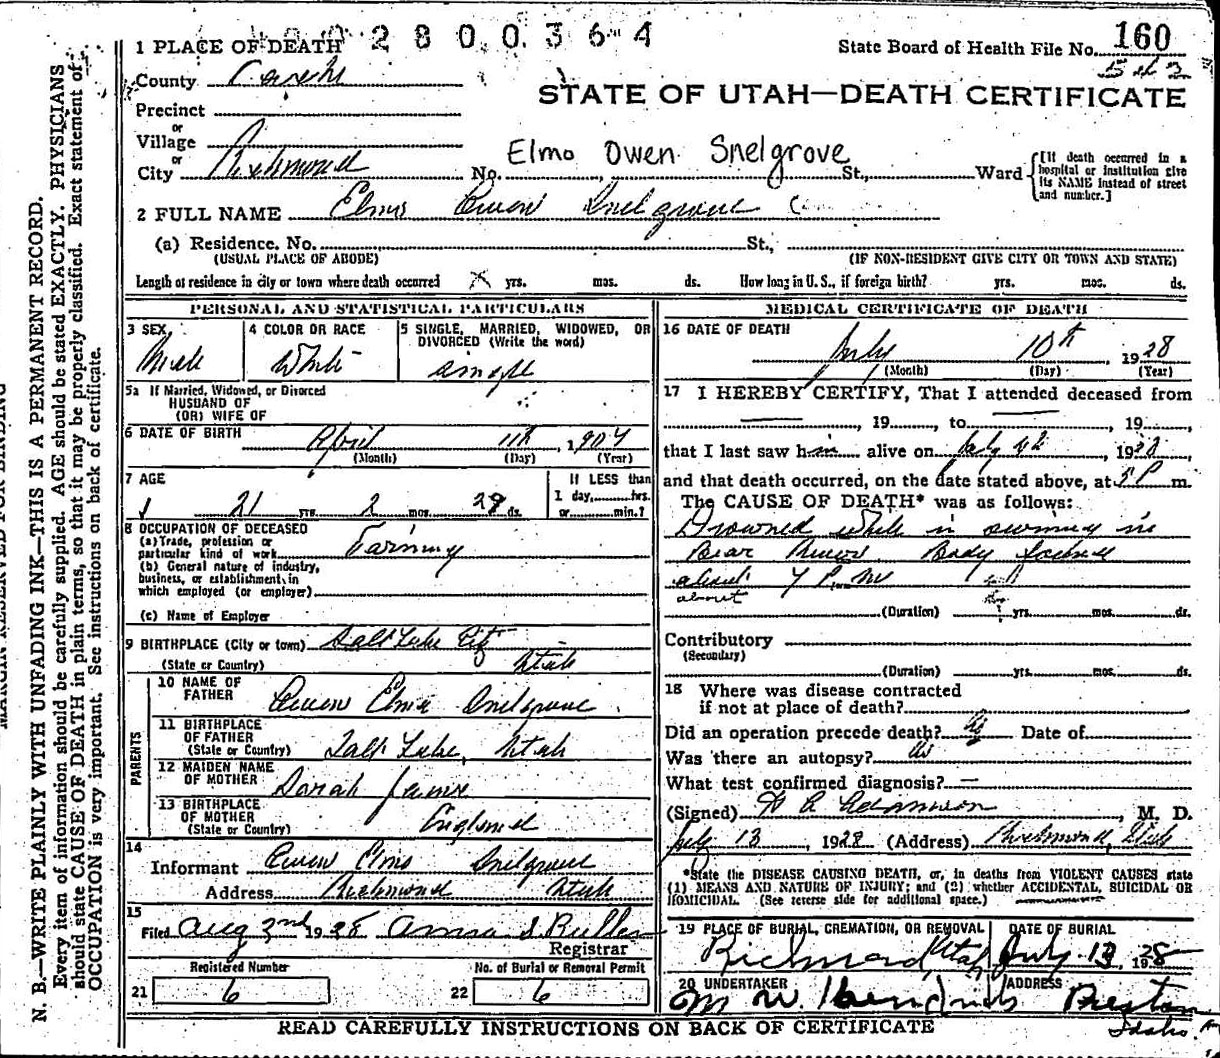 2800364
1 PLACE OF DEATH
State Board of Health File No. 160
County
STATE OF UTAH—DEATH CERTIFICATE
Precinct
or
Village
or
Elmo Owen Snelgrove
City Richmond No. St., Ward [If death occurred in a hospital or institution give its NAME instead of street and number.]
2 FULL NAME Elmo Owen Snelgrove
(a) Residence. No. St.,
(USUAL PLACE OF ABODE) (IF NON-RESIDENT GIVE CITY OR TOWN AND STATE)
Length of residence in city or town where death occurred yrs. mos. ds. How long in U. S., if foreign birth? yrs. mos. ds.
PERSONAL AND STATISTICAL PARTICULARS
3 SEX
Male
4 COLOR OR RACE
White
5 SINGLE, MARRIED, WIDOWED, OR
DIVORCED (Write the word)
single
5a If Married, Widowed, or Divorced
HUSBAND OF
(OR) WIFE OF
6 DATE OF BIRTH April 11th, 1907
(Month) (Day) (Year)
7 AGE
21 yrs. 2 mos. 29 ds.
If LESS than
1 day, hrs.
or min.?
8 OCCUPATION OF DECEASED
(a) Trade, profession or
particular kind of work Farming
(b) General nature of industry,
business, or establishment in
which employed (or employer)
(c) Name of Employer
9 BIRTHPLACE (City or town) Salt Lake City
(State or Country) Utah
PARENTS
10 NAME OF
FATHER Owen Elmo Snelgrove
11 BIRTHPLACE
OF FATHER
(State or Country) Salt Lake, Utah
12 MAIDEN NAME
OF MOTHER Sarah
13 BIRTHPLACE
OF MOTHER
(State or Country) England
14
Informant Owen Elmo Snelgrove
Address Richmond Utah
15
Filed Aug 2nd 1928 Anna S
Registrar
Registered Number
21 6
No. of Burial or Removal Permit
22 6
MEDICAL CERTIFICATE OF DEATH
16 DATE OF DEATH
July 10th, 1928
(Month) (Day) (Year)
17 I HEREBY CERTIFY, That I attended deceased from
, 19 , to , 19
that I last saw him alive on July 4th, 1928
and that death occurred, on the date stated above, at P m.
The CAUSE OF DEATH* was as follows:
Drowned while in swiming in
Bear River Body found
about 7 P.M
about
(Duration) yrs. mos. ds.
Contributory
(Secondary)
(Duration) yrs. mos. ds.
18 Where was disease contracted
if not at place of death?
Did an operation precede death? no Date of
Was there an autopsy? no
What test confirmed diagnosis? —
(Signed) M. D.
July 13, 1928 (Address) Richmond, Utah
*State the DISEASE CAUSING DEATH, or, in deaths from VIOLENT CAUSES state
(1) MEANS AND NATURE OF INJURY; and (2) whether ACCIDENTAL, SUICIDAL OR
HOMICIDAL. (See reverse side for additional space.)
19 PLACE OF BURIAL, CREMATION, OR REMOVAL
Richmond, Utah
DATE OF BURIAL
July 13, 1928
20 UNDERTAKER
M W Hendricks
ADDRESS
Preston
Idaho.
READ CAREFULLY INSTRUCTIONS ON BACK OF CERTIFICATE
MARGIN RESERVED FOR BINDING
N. B.—WRITE PLAINLY WITH UNFADING INK—THIS IS A PERMANENT RECORD.
Every item of information should be carefully supplied. AGE should be stated EXACTLY. PHYSICIANS
should state CAUSE OF DEATH in plain terms, so that it may be properly classified. Exact statement of
OCCUPATION is very important. See instructions on back of certificate.